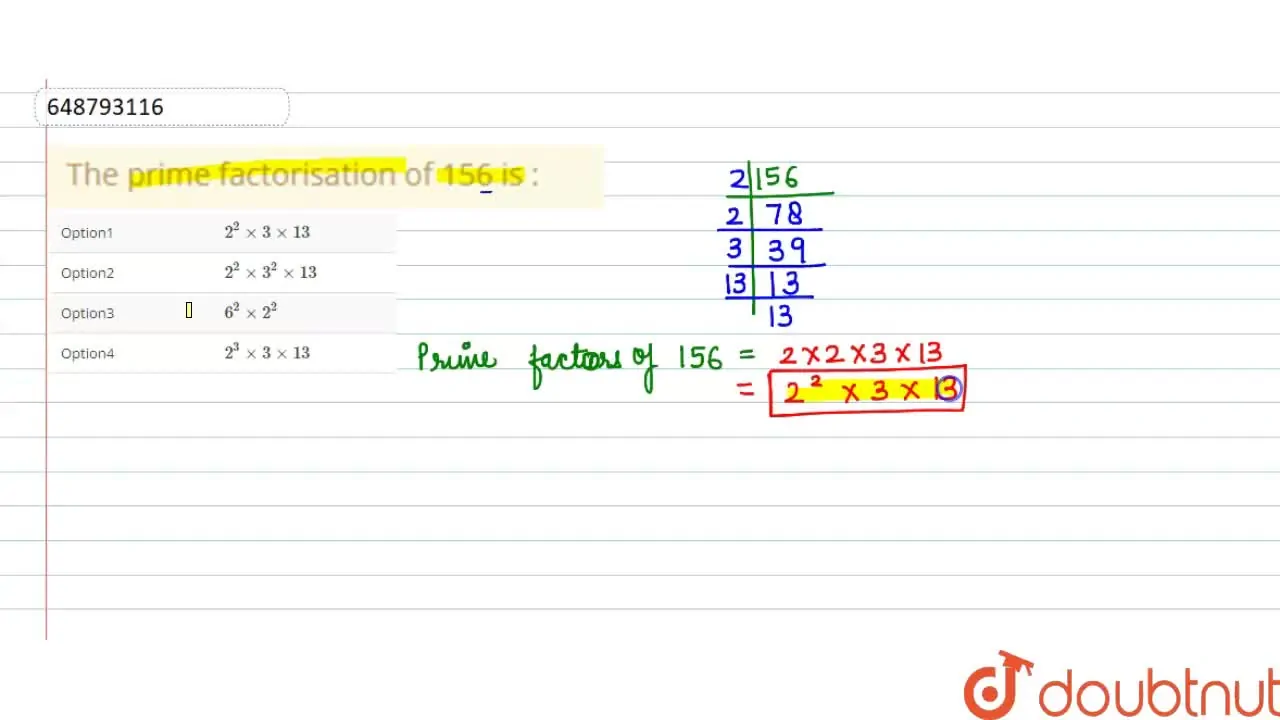 648793116
The prime factorisation of 156 is :
Option1 2² × 3 × 13
Option2 2² × 3² × 13
Option3 6² × 2²
Option4 2³ × 3 × 13
2 156
2 78
3 39
13 13
13
Prime factors of 156 = 2 × 2 × 3 × 13
= 2² × 3 × 13
doubtnut